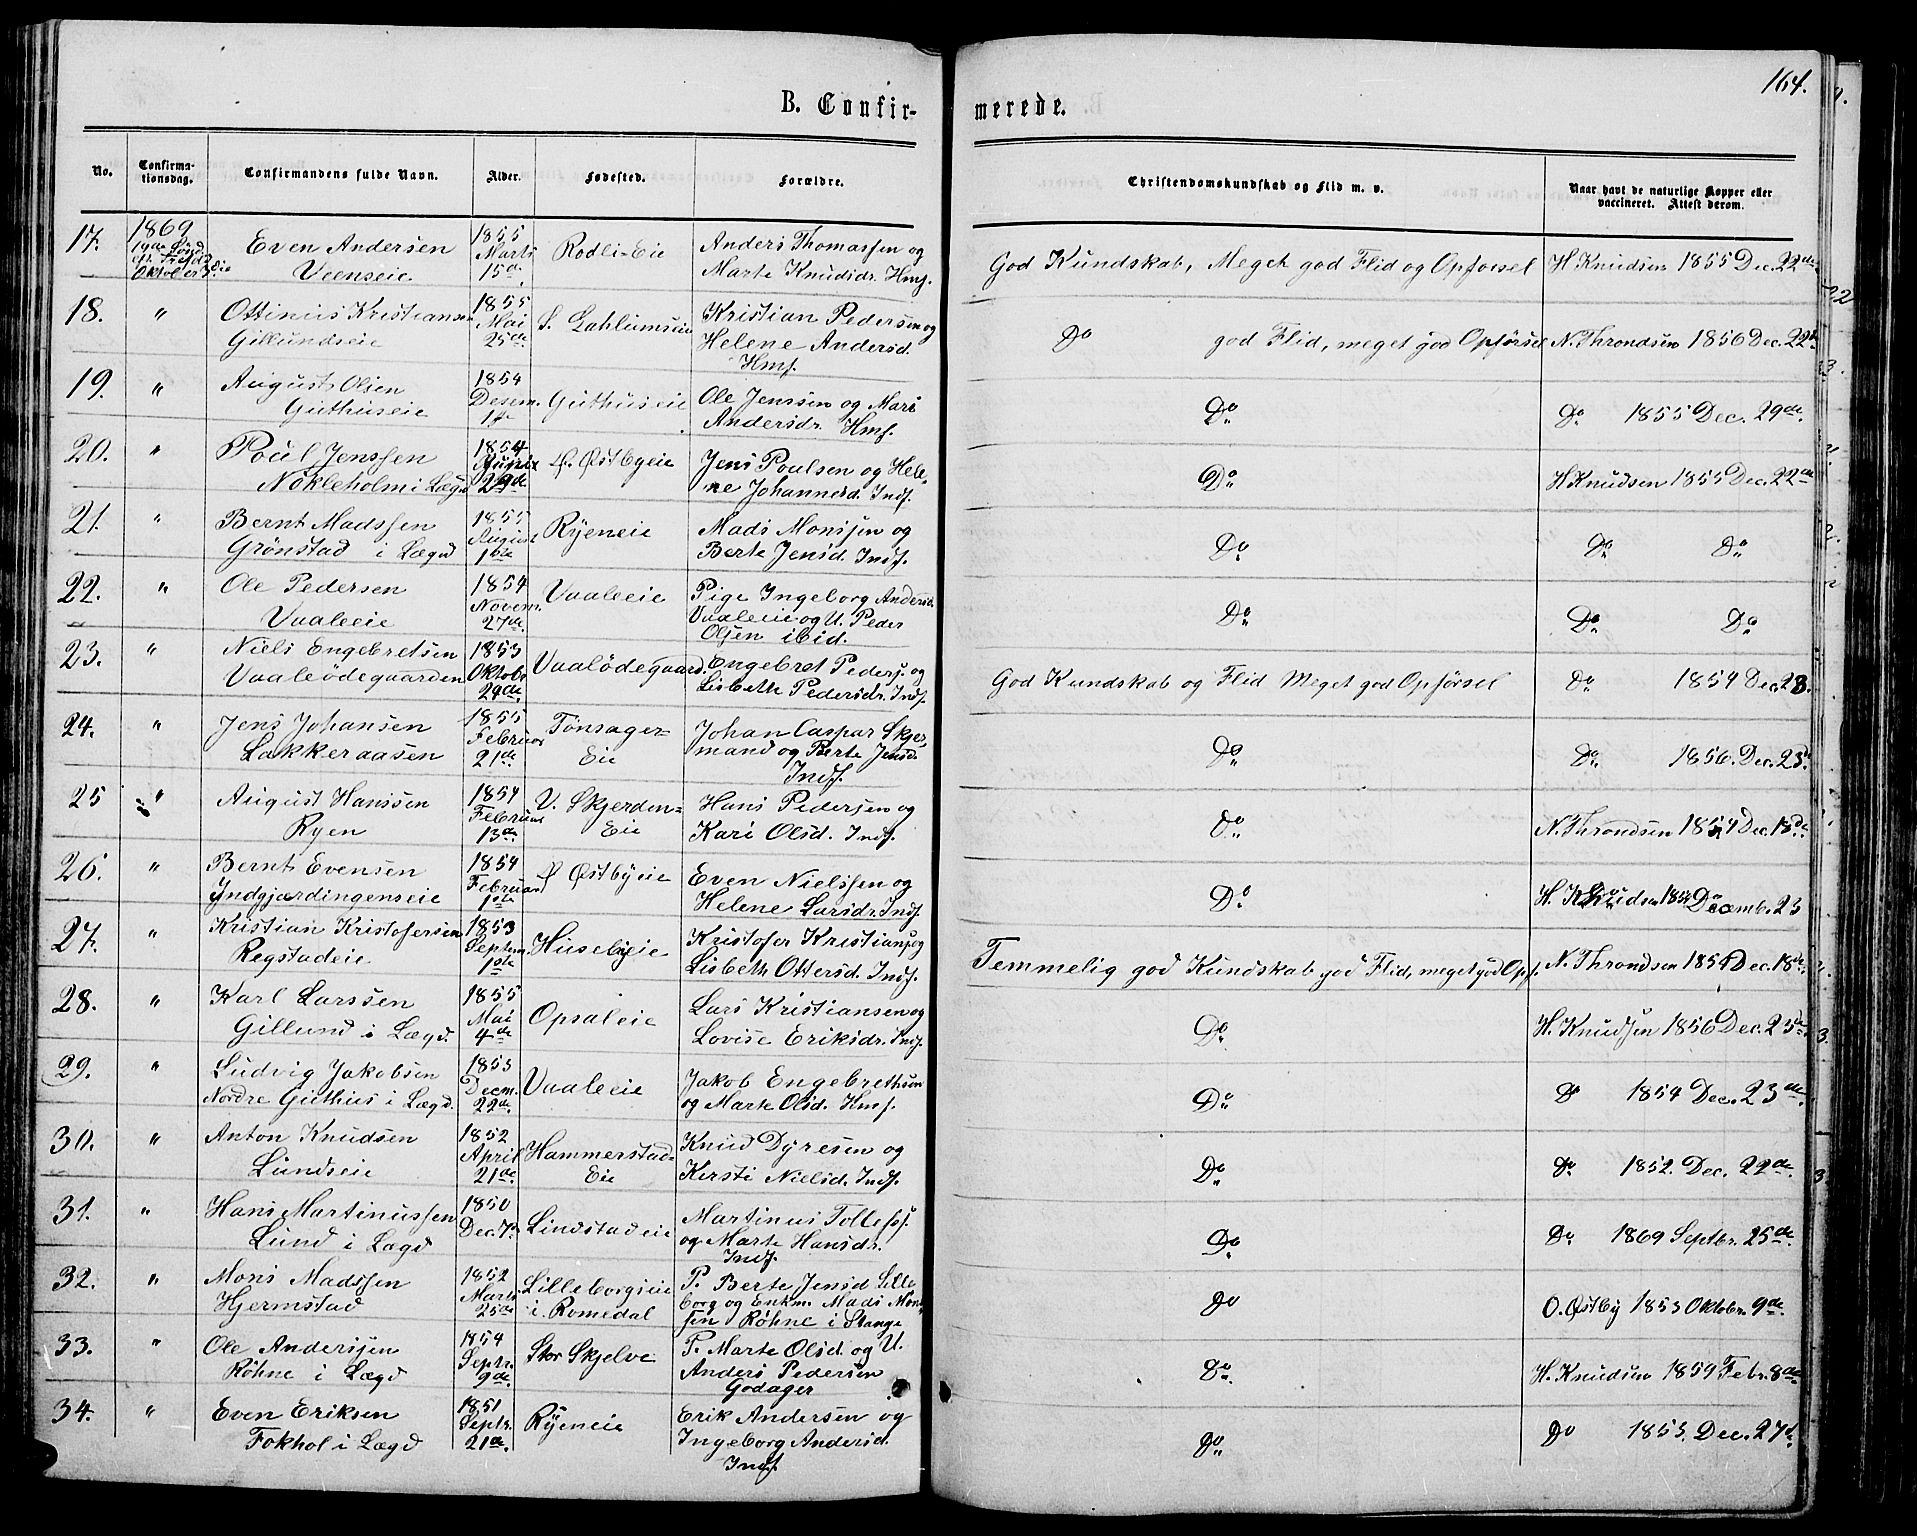 164.
B. Confirmerede.
No. Confirmationsdag. Confirmandens fulde Navn. Alder. Fødested. Forældre. Christendomskundskab og Flid m. v. Naar havt de naturlige Kopper eller vaccineret. Attest derom.
17. 1869 Even Andersen 1855 Rodli-Eie Anders Thomassen og
Oktober 3die Veenseie Marts 15de Marte Knudsdr. Hmf. God Kundskab, Meget god Flid og Opførsel H. Knudsen 1855 Dec. 22de
18. " Ottinius Kristiansen 1855 S. Gahlumseie Kristian Pedersen og
Gillundseie Mai 25de Helene Andersd. Hmf. Do god Flid, meget god Opførsel N. Throndsen 1856 Dec. 22de
19. " August Olsen 1854 Guthuseie Ole Jenssen og Mari
Guthuseie Desem. 1ste Andersdr. Hmf. Do Do 1855 Dec. 29de.
20. " Poul Jenssen 1854 Østbyeie Jens Poulsen og Hele-
Nökleholm i Lægd 29de ne Johannesd. Indf. Do H Knudsen 1855 Dec. 22de
21. " Bernt Madssen 1855 Ryeneie Mads Monssen og
Grönstad i Lægd August 1ste Berte Jensd. Indf. Do Do Do
22. " Ole Pedersen 1854 Vaaleeie Pige Ingeborg Andersd.
Vaaleeie Novem. 27de. Vaaleeie og U. Peder
Olsen ibid. Do Do Do
23. " Niels Engebretsen 1853 Vaalødegaard. Engebret Peders. og
Vaaleödegaarden Oktober 29de Lisbeth Pedersdr. Indf. God Kundskab og Flid Meget god Opførsel Do 1854 Dec. 23.
24. " Jens Johansen 1855 Tønsager- Johan Caspar Skjer-
Lakkeraasen Februar 21de Eie mand og Berte Jensd.
Indf. Do Do 1856. Dec. 23.
25 " August Hanssen 1854 V. Skjerden- Hans Pedersen og
Ryen Februar 13de Eie Kari Olsd. Indf. Do N. Throndsen 1854 Dec. 18de.
26. " Bernt Evensen 1854 Østbyeie Even Nielssen og
Yndgjærdingenseie Februar 1ste Helene Larsdr. Indf. Do H. Knudsen 1854 Decemb. 23
27. " Kristian Kristofersen 1853 Husebyeie Kristofer Kristians. og
Regstadeie Septem. 1ste Lisbeth Ottersd. Indf. Temmelig god Kundskab god Flid, meget god Opf. N. Throndsen 1854 Dec. 18de
28. " Karl Larssen 1855 Opsaleie Lars Kristiansen og
Gillund i Lægd. Mai 4de Lovise Eriksdr. Indf. Do H. Knudsen 1856 Dec. 23de
29. " Ludvig Jakobsen 1853 Vaaleeie Jakob Engebrethsen
Nordre Guthus i Lægd. Decm. 22de. og Marte Olsd. Hmf. Do Do 1854 Dec. 23de.
30. " Anton Knudsen 1852 Hammerstad- Knud Dyresen og
Lundseie April 21de Eie Kersti Nielsd. Indf. Do Do 1852. Dec. 22de.
31. " Hans Martinussen 1850 Lindstadeie Martinus Tollefs.
Lund i Lægd Dec. 7de og Marte Hansdr.
Indf. Do Do 1869 Septbr. 25de.
32. " Mons Madssen 1852 Lilleborgseie P. Berte Jensd Lille-
Hjermstad Marts 25de i Romedal borg og Enkm. Mads Mons-
sen Røhne i Stange Do O. Østby 1853 Oktobr. 9de.
33. " Ole Anderssen 1854 Stor Skjelve P. Marte Olsd. og U.
Röhne i Lægd Septr. 9de. Anders Pedersen
Godager Do. H. Knudsen 1859 Febr. 8de.
34. " Even Eriksen 1851 Ryeneie Erik Andersen og
Fokhol i Lægd Septr. 21de. Ingeborg Andersd.
Indf. Do Do 1853. Dec. 27d.